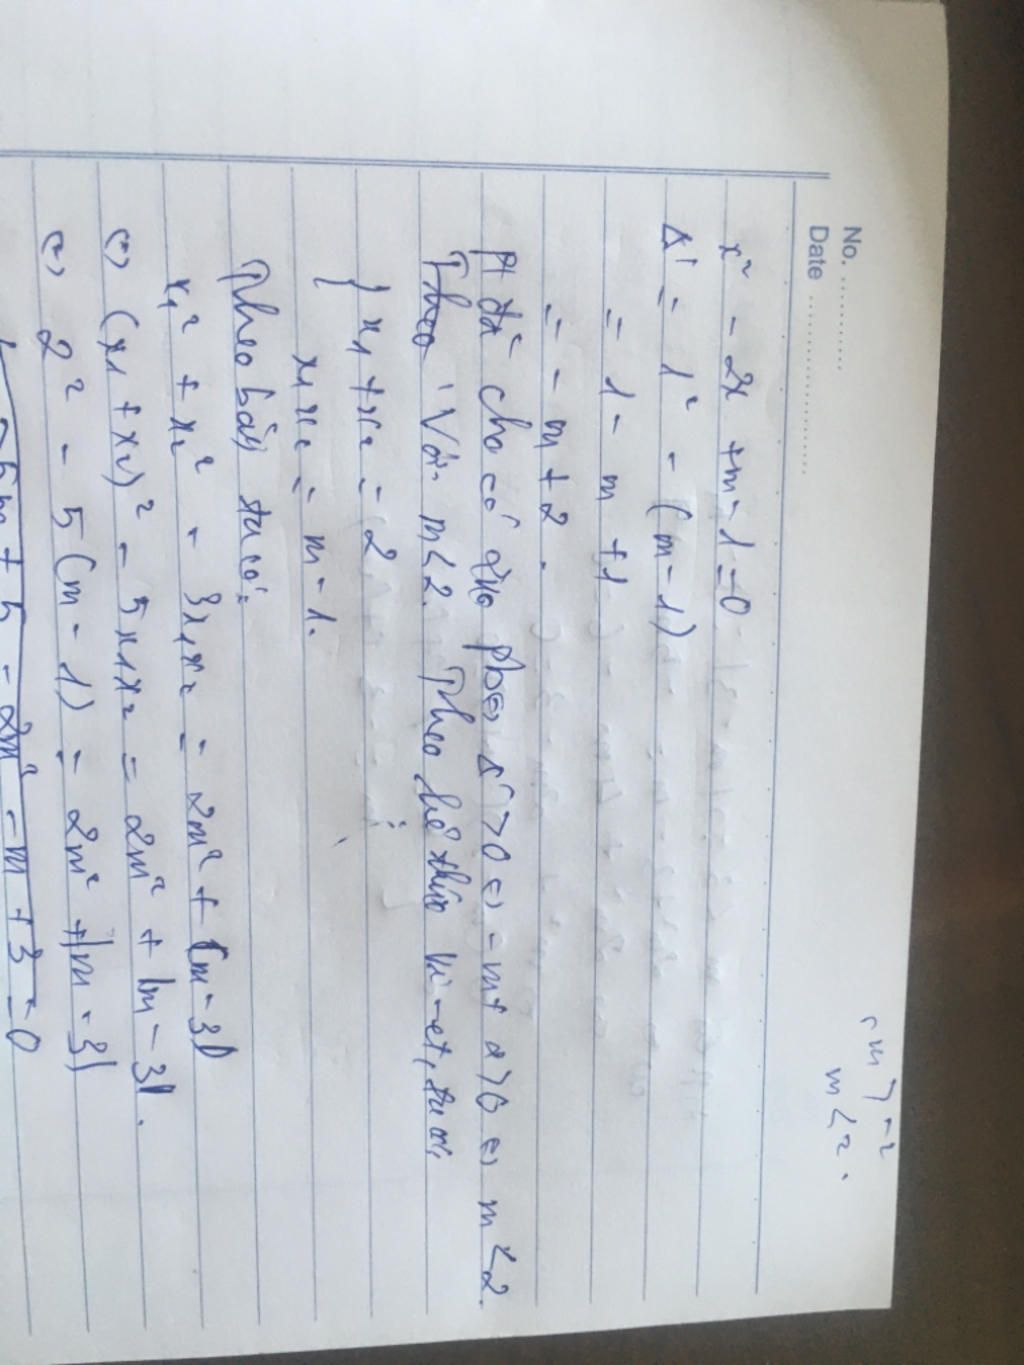 No. ............
Date ........................
m > -2
m < 2.
x² - 2x + m - 1 = 0
Δ' = 1² - (m - 1)
= 1 - m + 1
= - m + 2.
Pt đã cho có pb ⇔ Δ' > 0 ⇔ -m + 2 > 0 ⇔ m < 2.
Với m < 2. Theo hệ thức Vi-et, ta có
{ x₁ + x₂ = 2
x₁x₂ = m - 1.
Theo bài, ta có:
x₁² + x₂² - 3x₁x₂ = 2m² + |m - 3|
⇔ (x₁ + x₂)² - 5x₁x₂ = 2m² + |m - 3|.
⇔ 2² - 5(m - 1) = 2m² + |m - 3|
- 5m + 5 - 2m² - m + 3 = 0